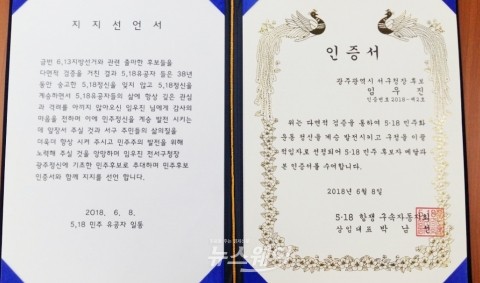 지 지 선 언 서
금번 6,13지방선거와 관련 출마한 후보들을
다면적 검증을 거친 결과 5,18유공자 들은 38년
동안 숭고한 5,18정신을 잊지 않고 5,18정신을
계승하면서 5,18유공자들의 삶에 항상 깊은 관심
과 격려를 아끼지 않아오신 임우진 후보에게 감사의
마음을 전하며 이에 민주정신을 계승 발전 시키는
데 앞장서 주실 것과 서구 주민들의 삶의질을
더욱더 향상 시켜 주시고 민주주의 발전을 위해
노력해 주실 것을 앙망하며 임우진 전서구청장
광주정신에 기초한 민주후보로 추대하며 민주후보
인증서와 함께 지지를 선언 합니다.
2018. 6. 8.
5,18 민주 유공자 일동
인증서
광주광역시 서구청장 후보
임 우 진
인증번호 2018-제2호
위는 다면적 검증을 통하여 5·18 민주화
운동 정신을 계승 발전시키고 구정을 이끌
적임자로 선정되어 5·18 민주 후보자 메달과
본 인증서를 수여합니다.
2018년 6월 8일
5·18 항쟁 구속자동지회
상임대표 박 남 선
뉴스웨이